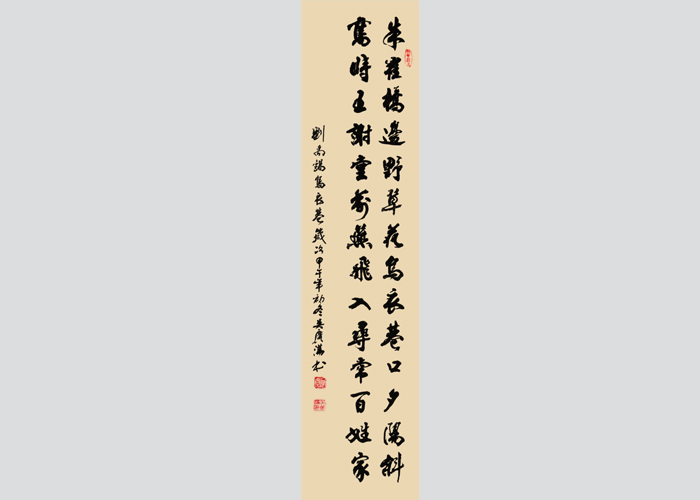 朱雀橋邊野草花烏衣巷口夕陽斜
舊時王謝堂前燕飛入尋常百姓家
劉禹錫烏衣巷歲次甲午年初冬吳